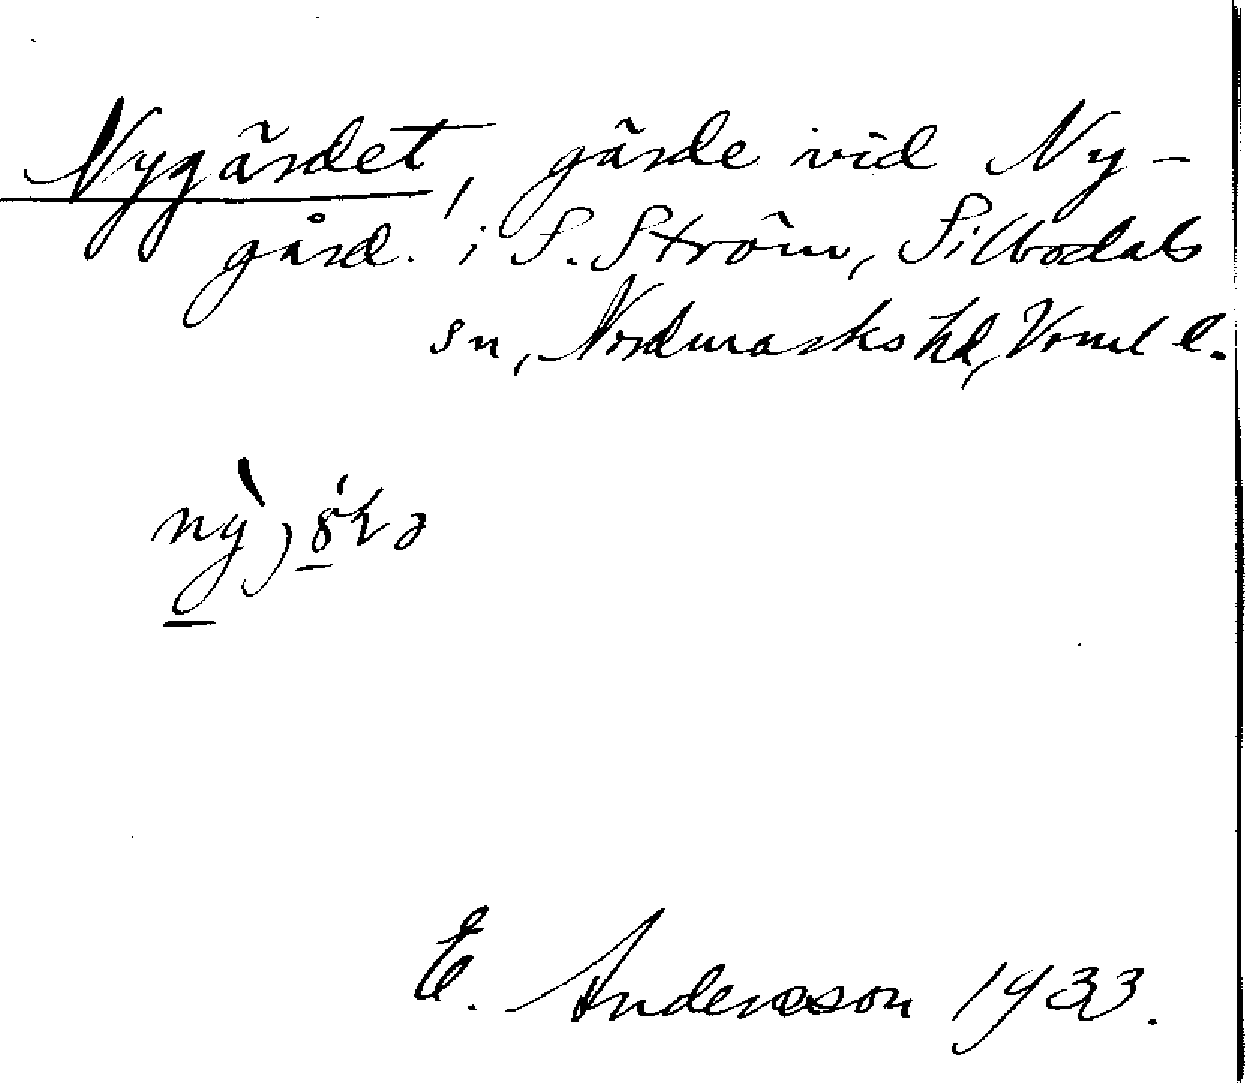 Nygärdet, gärde vid Ny-
gård. i S. Ström, Silbodals
sn, Nordmarks hd, Vrml l.
E. Andersson 1933.